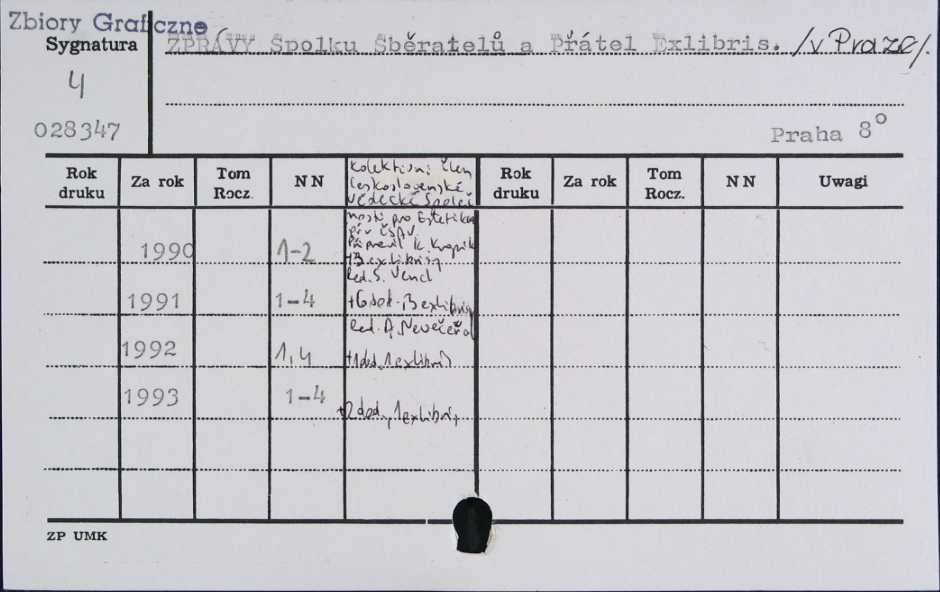 Zbiory Graficzne
Sygnatura
ZPRÁVY Spolku Sběratelů a Přátel Exlibris. /v Praze/.
4
028347
Praha 8°
Rok druku Za rok Tom Rocz. NN Rok druku Za rok Tom Rocz. NN Uwagi
Kolektivní člen
Československé
vědecké společ
nosti pro Estetiku
při ČSAV.
1990 1-2
Připravil K.
+3 exlibrisy
Red. S. Vencl
1991 1-4 +6 dod., 3 exlibrisy
Red. A. Nevečeřal
1992 1,4 +1 dod, 1 exlibris
1993 1-4 +2 dod., 1 exlibris
ZP UMK